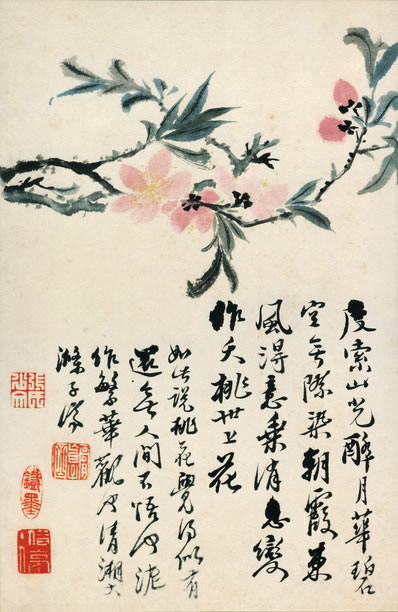 度索山光醉月華碧
空無際染朝霞東
風得意乘消息變
作夭桃世上花
如此說桃花覺得似有
還無人間不悟
作繁華觀清湘大
滌子